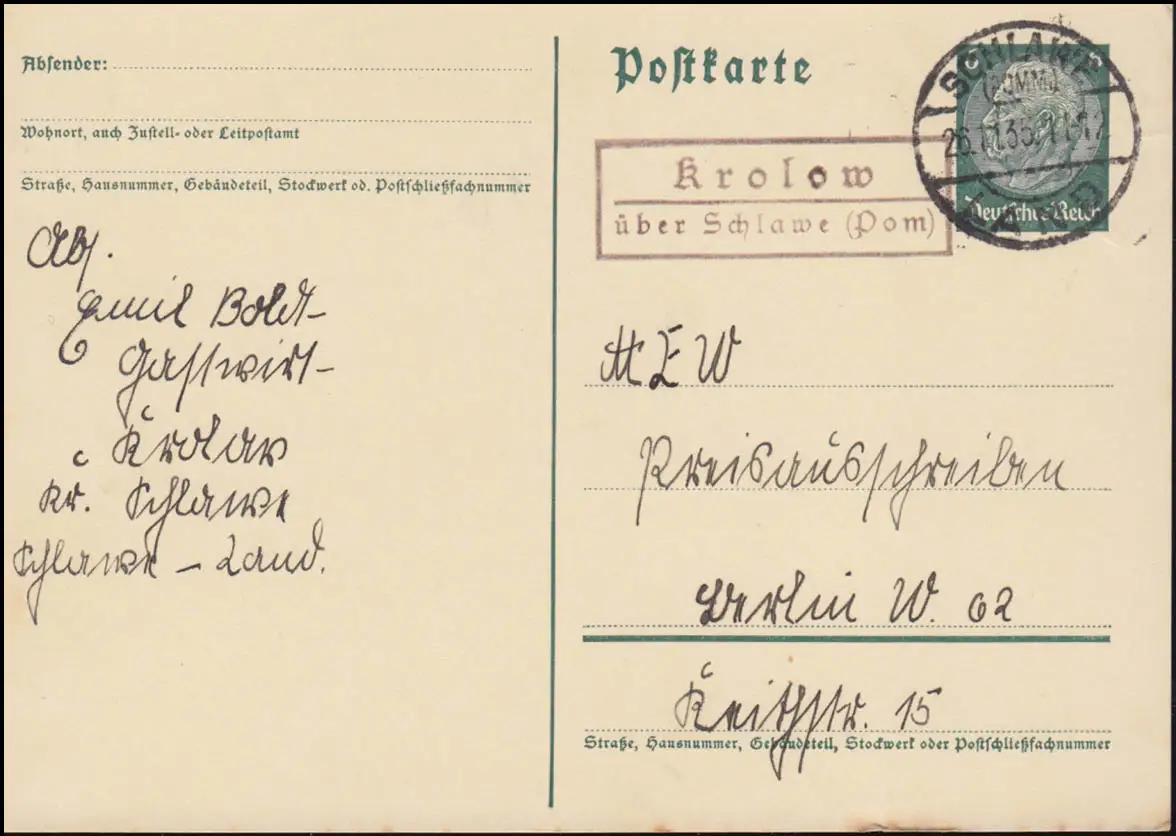 Absender:
Wohnort, auch Zustell- oder Leitpostamt
Straße, Hausnummer, Gebäudeteil, Stockwerk od. Postschließfachnummer
Abs.
Emil Boldt
Gastwirt
Krolow
Kr. Schlawe
Schlawe - Land.
Postkarte
Krolow
über Schlawe (Pom)
SCHLAWE
(POMM)
26.11.35.
LAND
6 6
Deutsches Reich
M E W
Preisausschreiben
Berlin W. 62
Keithstr. 15
Straße, Hausnummer, Gebäudeteil, Stockwerk oder Postschließfachnummer